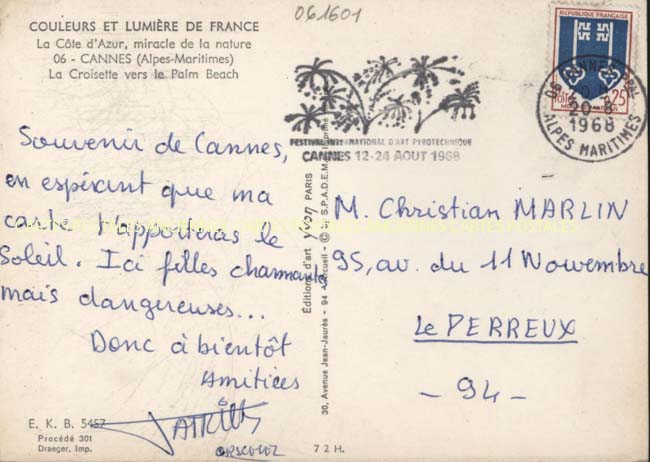 COULEURS ET LUMIÈRE DE FRANCE
La Côte d'Azur, miracle de la nature
06 - CANNES (Alpes-Maritimes)
La Croisette vers le Palm Beach
061601
FESTIVAL INTERNATIONAL D'ART PYROTECHNIQUE
CANNES 12-24 AOUT 1968
RÉPUBLIQUE FRANÇAISE
0,25
MONT-DE-MARSAN
06 CANNES PPAL
20-8
1968
ALPES MARITIMES
Souvenir de Cannes,
en espérant que ma
carte t'apporteras le
Soleil. Ici filles charmantes
mais dangereuses...
Donc à bientôt
Amitiées
PATRICK
M. Christian MARLIN
95, av. du 11 Nowembre
Le PERREUX
- 94 -
Éditions d'art yvon PARIS
30, Avenue Jean-Jaurès - 94 Arcueil - © by S.P.A.D.E.M.
E. K. B. 5457
Procédé 301
Draeger, Imp.
72 H.